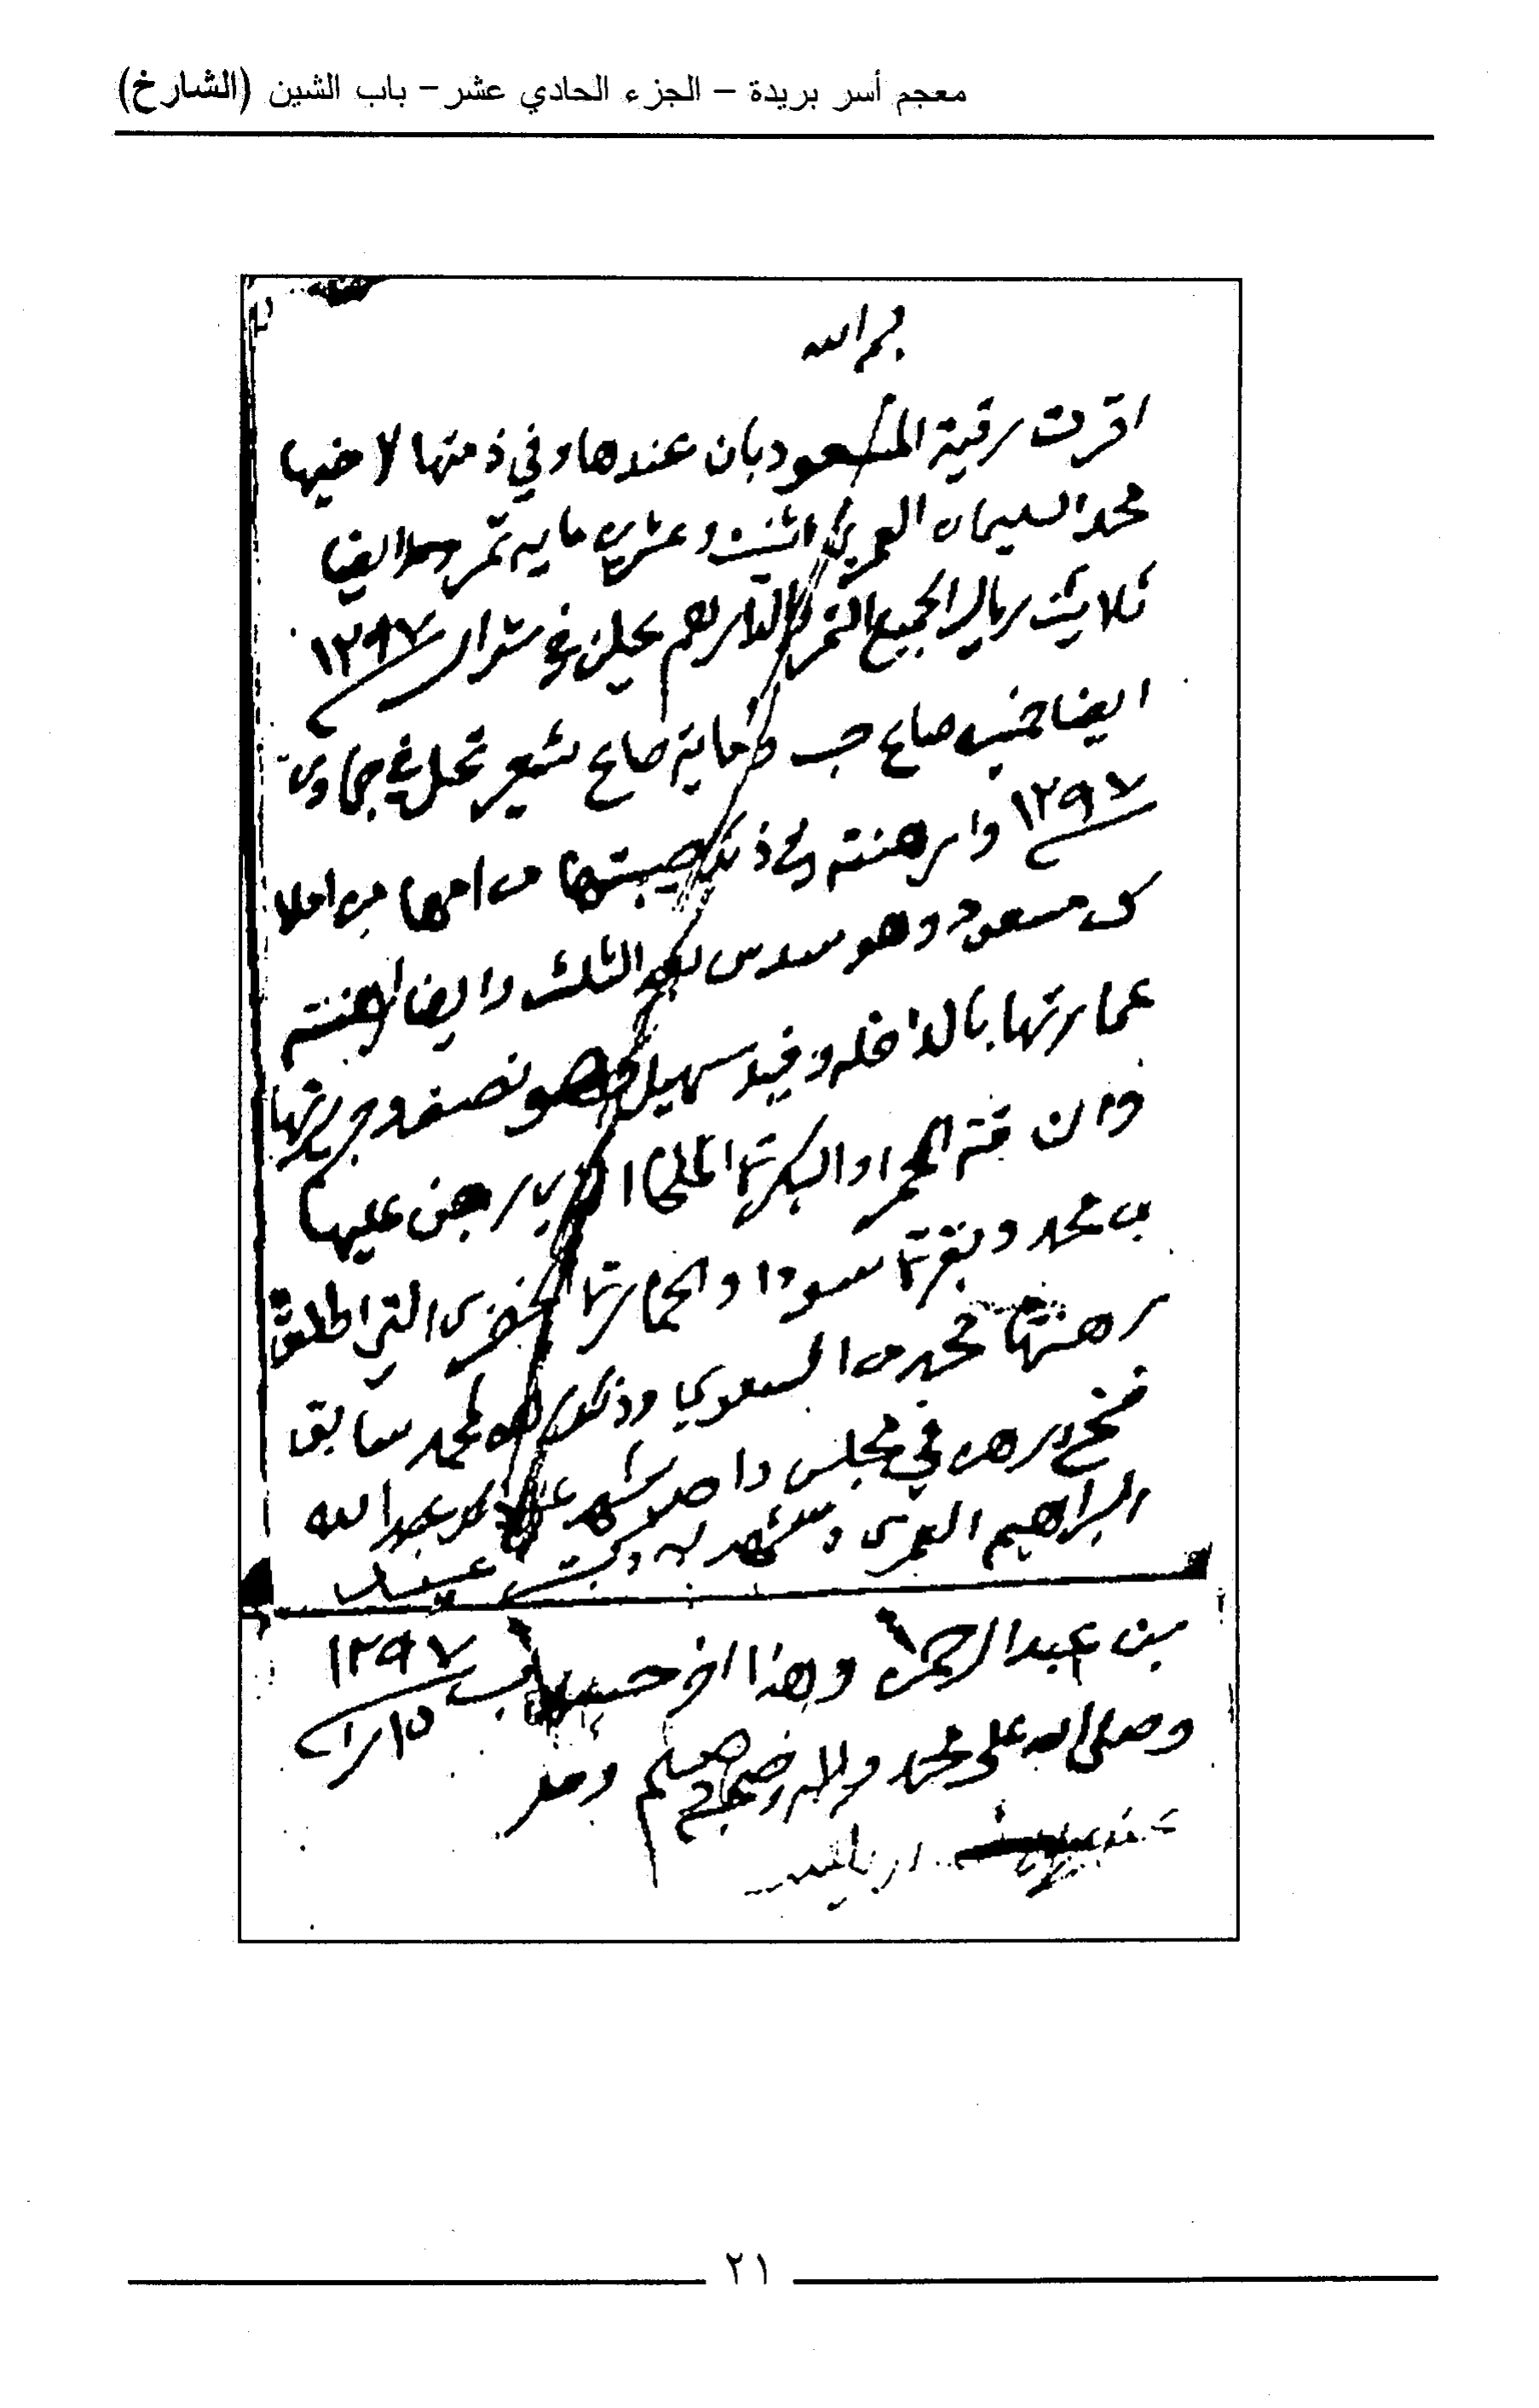 معجم أسر بريدة – الجزء الحادي عشر – باب الشين (الشارخ)
بسم الله
اقرت رقية المسعود بان عندها وفي ذمتها لاخيها
محمد السليمان العمري اثنين وعشرين مايه تمر وايضا
ثلاثين ريال الجميع التمر والدراهم يحلن في شوال ١٢٩٧
ايضا خمسين صاع حب وماية صاع شعير تحل في جمادى
١٢٩٧ وارهنته في ذلك صيبتها من امها من املا
ك مسعود وهو سدس بعد الثلث وايضا ارهنته
عمارتها بالداخله وفيد سهيل وهو نصفه وجريرتها
وان قته الحمرا والبكرتها الملحا
بن محمد وبقرتها سودا والحمارتها الخضرى التي اطلق
رهنها محمد السعوي وذلك رهن لمحمد سابق
فسخ ورهن في مجلس واحد شهد على ذلك عبدالله
البراهيم العمري وشهد به وكتبه
بن عبدالرحمن وهذا اخر حساب ١٢٩٧
وصلى الله على محمد واله وصحبه وسلم ١٥ را
٢١